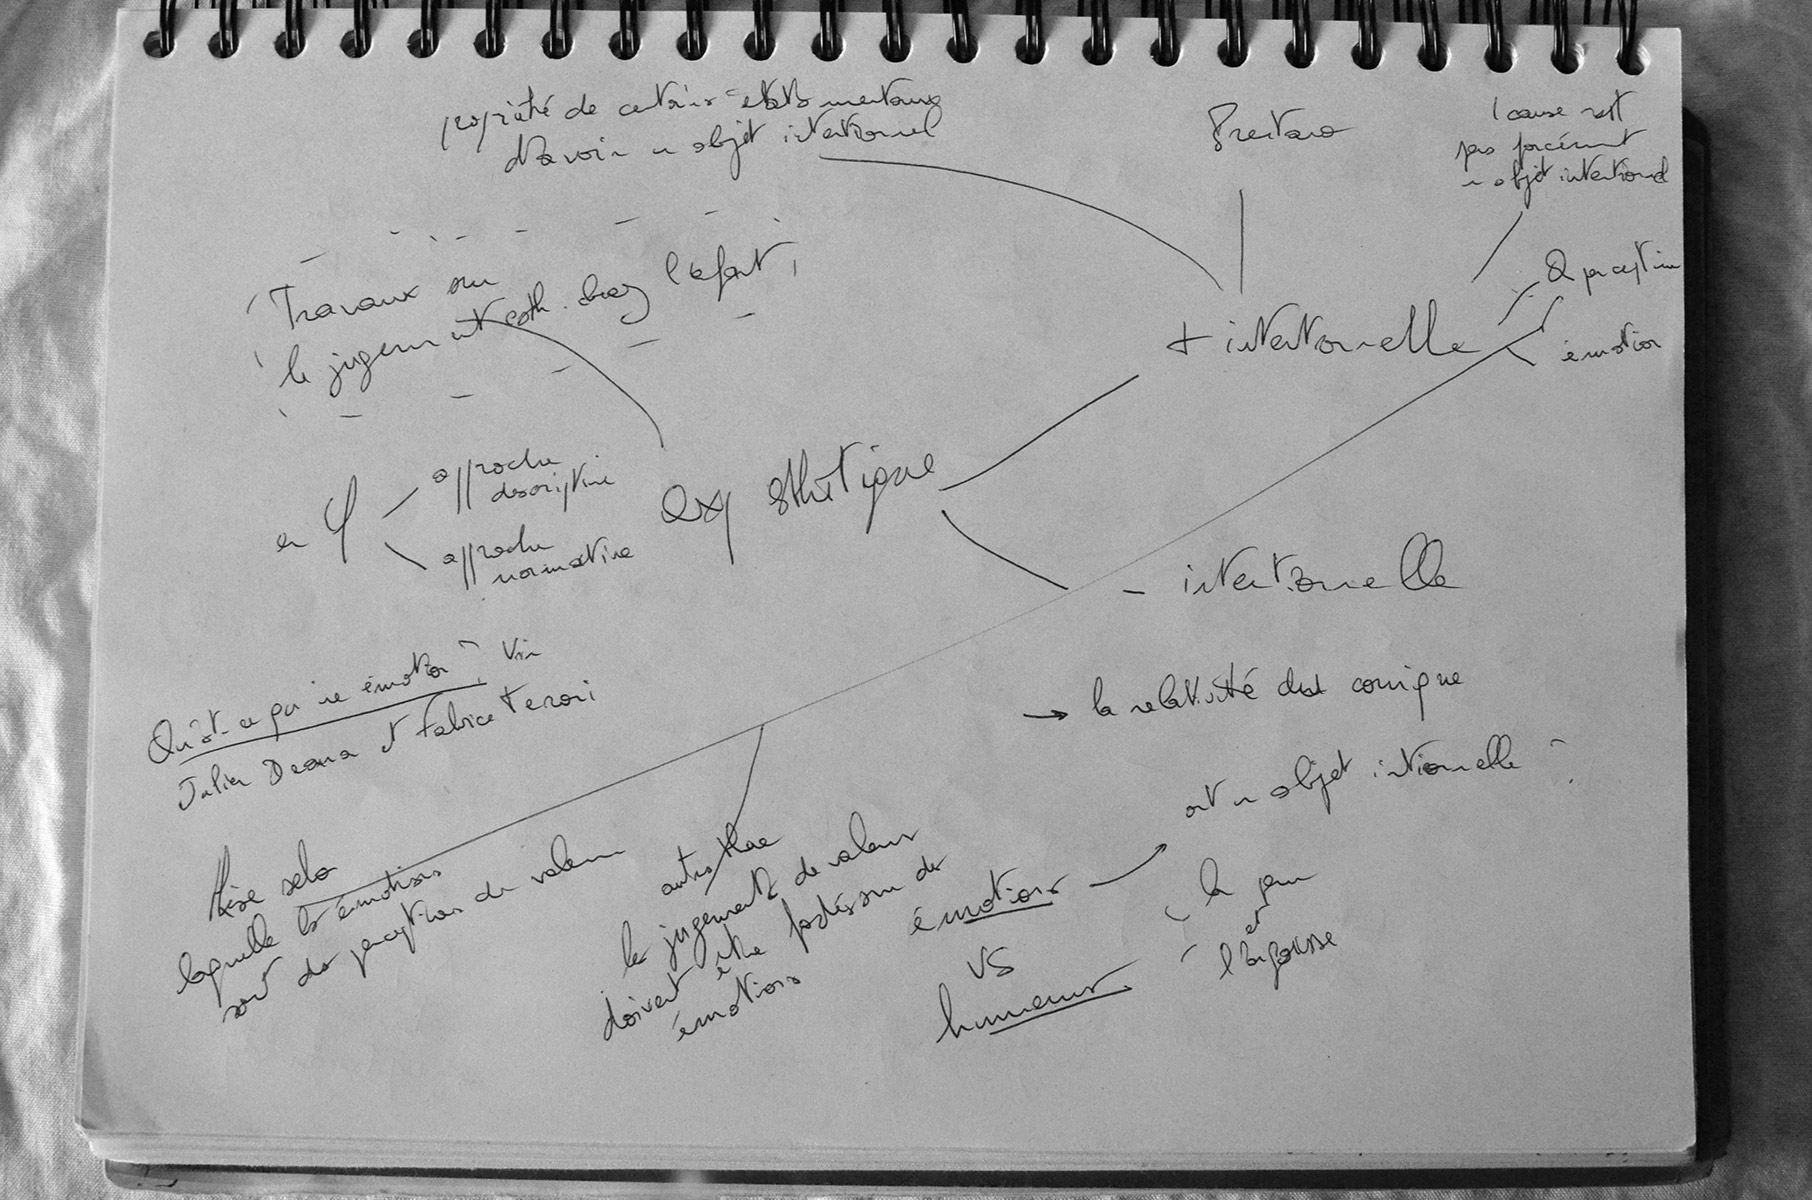 propriété de certains états mentaux
d'avoir un objet intentionnel
Brentano
1 cause n'est
pas forcément
un objet intentionnel
Travaux sur
le jugement esth. chez l'enfant
+ intentionnelle
perception
émotion
en φ
approche
descriptive
approche
normative
exp esthétique
- intentionnelle
Qu'est-ce qu'une émotion ? Vrin
Julien Deonna et Fabrice Teroni
→ la relativité du comique
ont un objet intionnelle ?
thèse selon
laquelle les émotions
sont des perceptions de valeurs
autre thèse
les jugements de valeurs
doivent être
émotions
émotions
vs
humeurs
la peur
et
l'angoisse